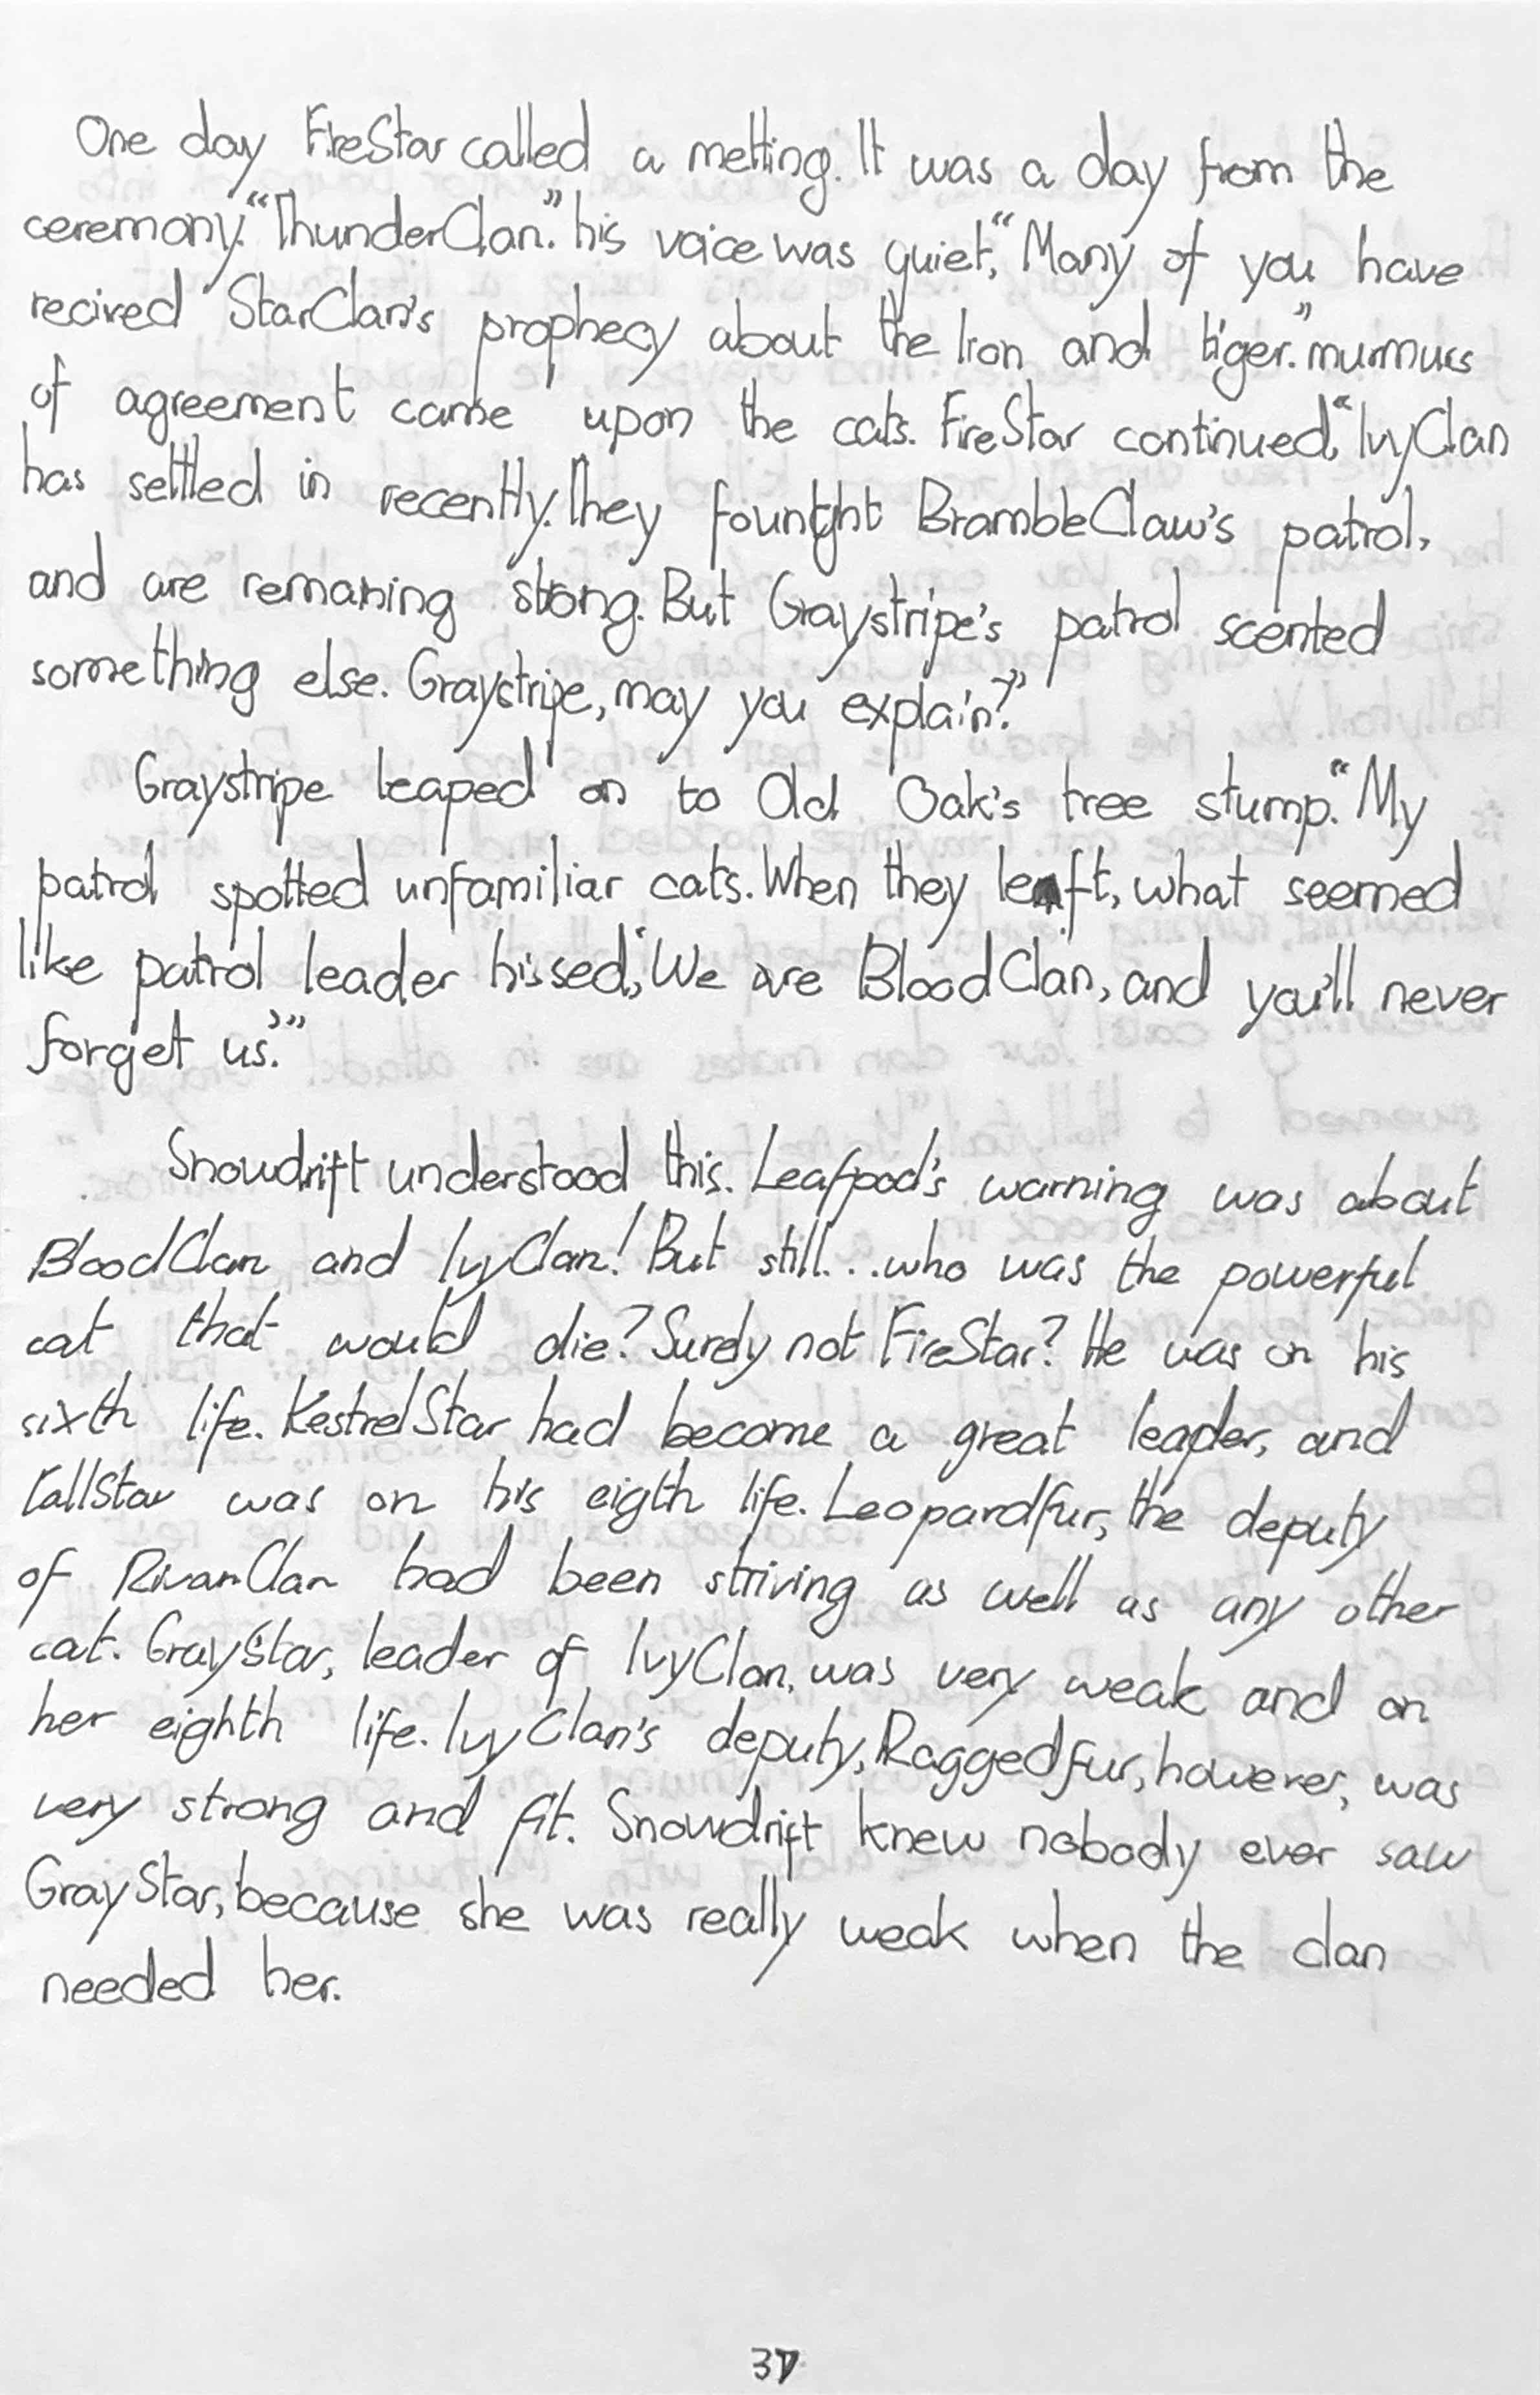 One day FireStar called a metting. It was a day from the
ceremony. “ThunderClan.” his voice was quiet, “Many of you have
recived StarClan's prophecy about the lion and tiger.” murmurs
of agreement came upon the cats. FireStar continued, “IvyClan
has settled in recently. They founght BrambleClaw's patrol,
and are remaning strong. But Graystripe's patrol scented
something else. Graystripe, may you explain?”
Graystripe leaped on to Old Oak's tree stump. “My
patrol spotted unfamiliar cats. When they left, what seemed
like patrol leader hissed, ‘We are BloodClan, and you'll never
forget us.’”
Snowdrift understood this. Leafpool's warning was about
BloodClan and IvyClan! But still...who was the powerful
cat that would die? Surely not FireStar? He was on his
sixth life. KestrelStar had become a great leader, and
TallStar was on his eigth life. Leopardfur, the deputy
of RiverClan had been striving as well as any other
cat. GrayStar, leader of IvyClan, was very weak and on
her eighth life. IvyClan's deputy, Raggedfur, however, was
very strong and fit. Snowdrift knew nobody ever saw
GrayStar, because she was really weak when the clan
needed her.
37